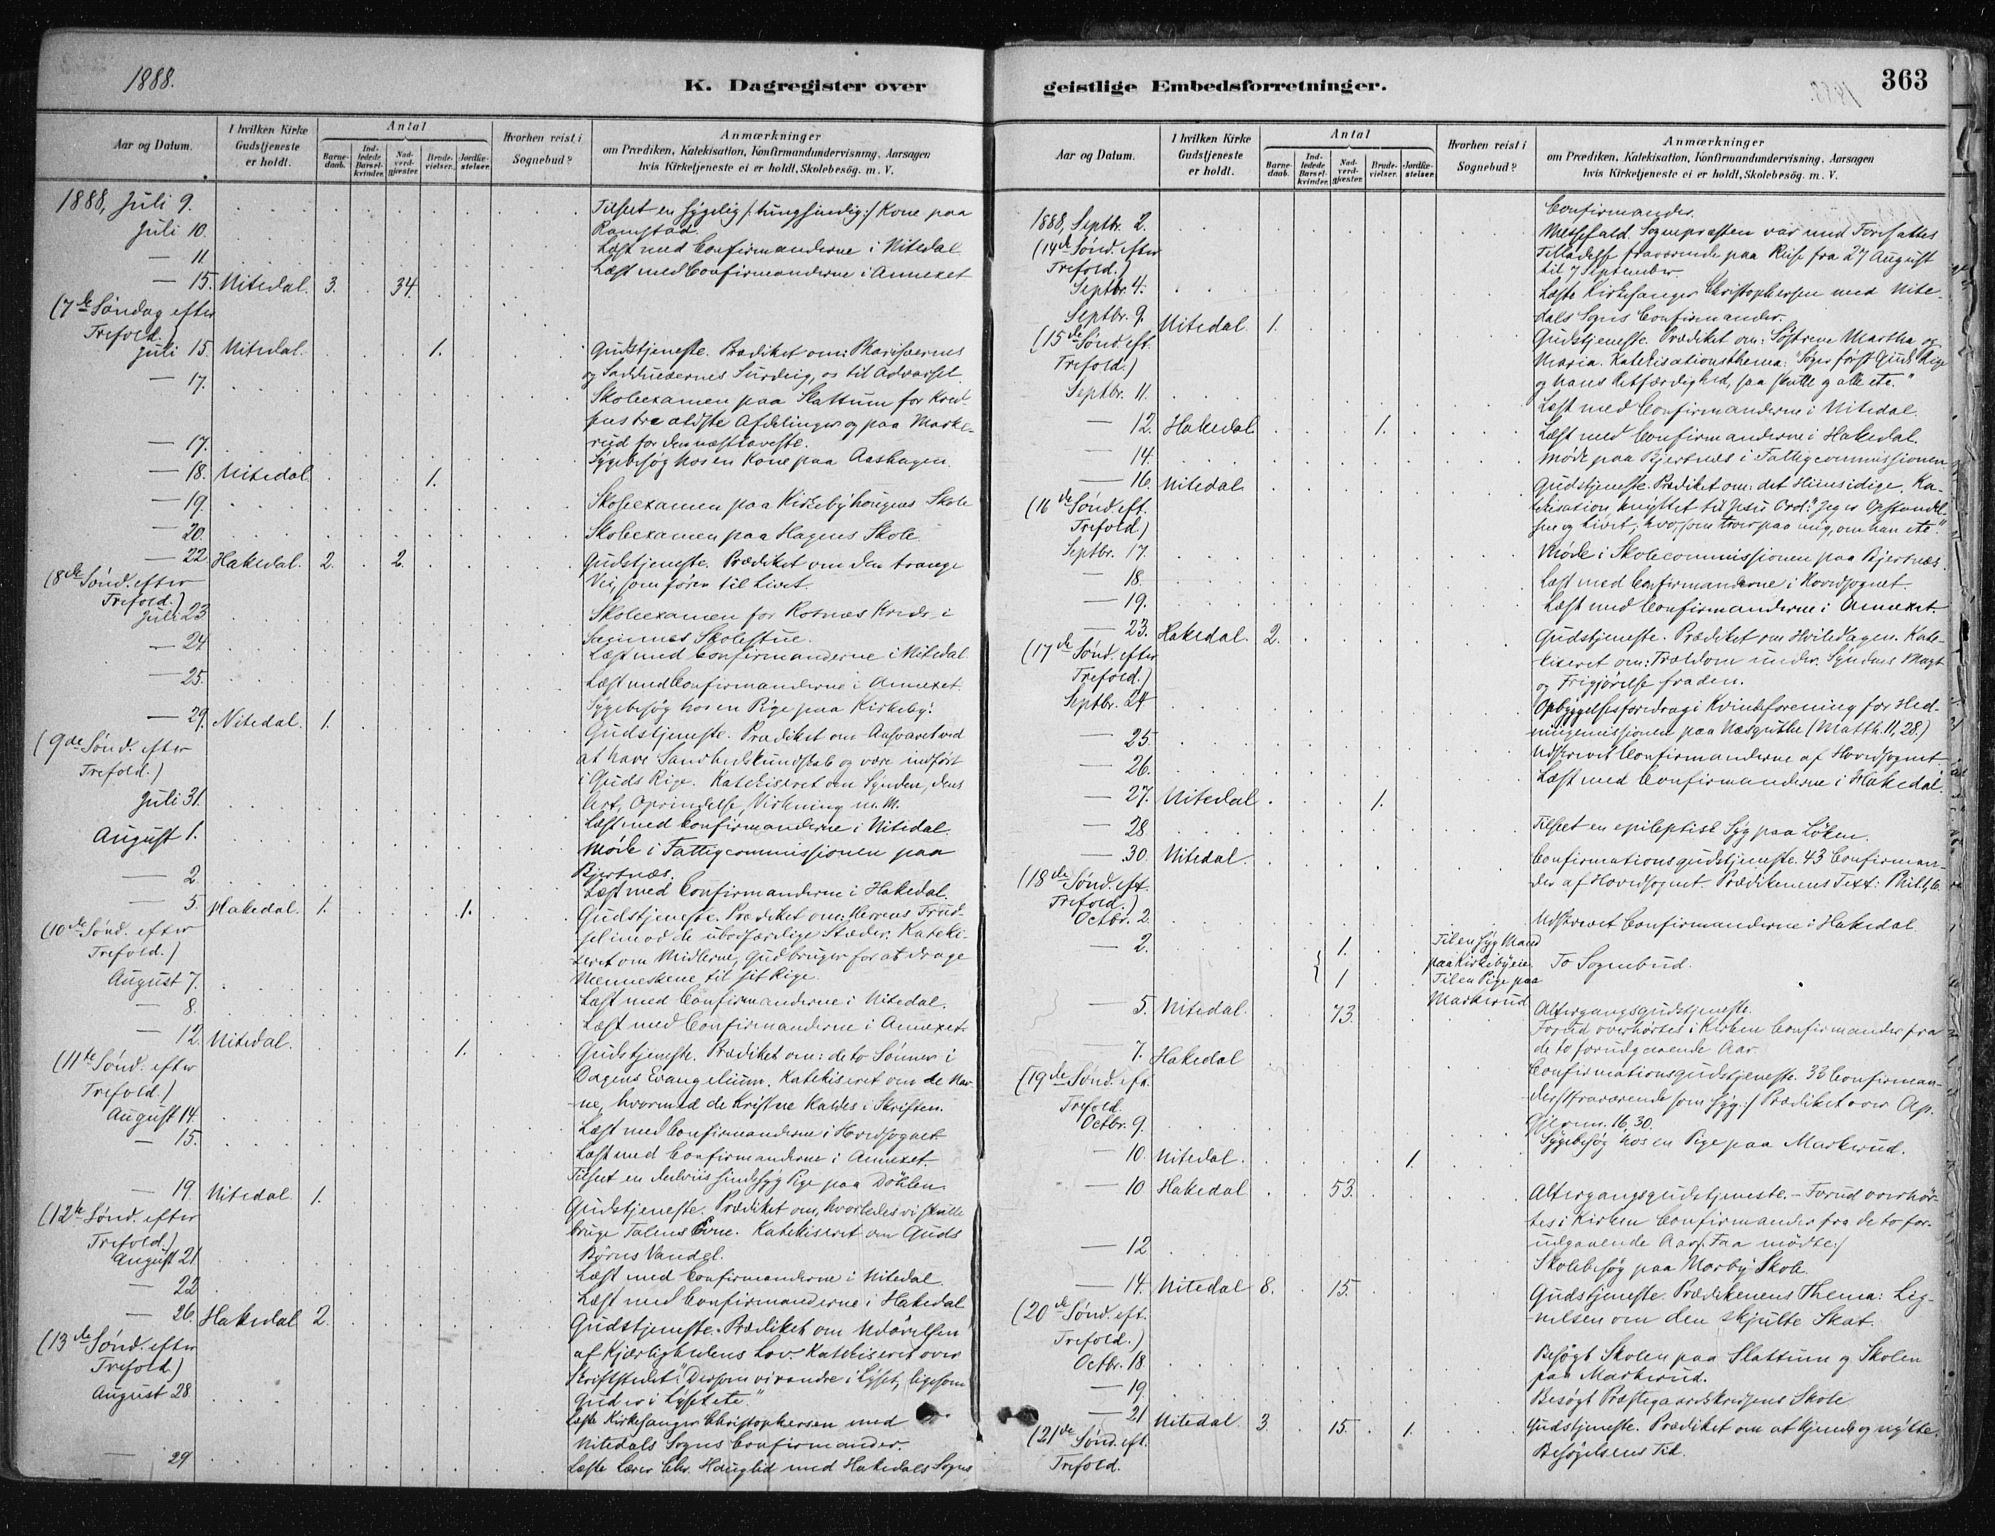 1888.
K. Dagregister over
Aar og Datum.
I hvilken Kirke Gudstjeneste er holdt.
Antal
Barnedaab.
Indledede Barselkvinder.
Nadverdgjæster.
Brudevielser.
Jordfæstelser.
Hvorhen reist i Sognebud?
Anmærkninger
om Prædiken, Katekisation, Konfirmandundervisning, Aarsagen
hvis Kirketjeneste ei er holdt, Skolebesøg. m. V.
1888, Juli 9. Tilseet en sygelig /: tungsindig :/ Kone paa
Ramstad.
Juli 10. Læst med Confirmanderne i Nitedal
— 11. Læst med Confirmanderne i Annexet
— 15. Nitedal. 3. 34.
(7de Søndag efter
Trefold.)
Juli 15. Nitedal. 1. Gudstjeneste. Prædiket om: Pharisæernes
og Sadducæernes Surdeig, os til Advarsel.
— 17. Skoleexamen paa Slattum for Kredsens
ældste Afdelinger og paa Markerud
for den næstlaveste.
— 17. Sygebesøg hos en Kone paa Aashagen.
— 18. Nitedal. 1.
— 19. Skoleexamen paa Kirkebyhougens Skole
— 20. Skoleexamen paa Hagens Skole.
— 22. Hakedal. 2. 2. Gudstjeneste. Prædiket om den trange
Vei, som fører til Livet.
(8de Sønd. efter
Trefold.)
Juli 23 Skoleexamen for Rotnæs Kreds i
Skolestue.
— 24. Læst med Confirmanderne i Nitedal.
— 25. Læst med Confirmanderne i Annexet.
Sygebesøg hos en Pige paa Kirkeby.
— 29. Nitedal. 1. Gudstjeneste. Prædiket om Ansvaret ved
at have Sandhedskundskab og være indført
i Guds Rige. Katekiseret om Synden, dens
Art, Oprindelse, Virkning m. M.
(9de Sønd. efter
Trefold.)
Juli 31. Læst med Confirmanderne i Nitedal.
August 1. Møde i Fattigcommissionen paa
Bjertnæs.
— 2. Læst med Confirmanderne i Hakedal.
— 5. Hakedal. 1. 1. Gudstjeneste. Prædiket om: Herrens Trudsel
imod de ubodfærdige Stæder. Katekiseret
om Midlerne, Gud bruger for at drage
Menneskene til sit Rige.
(10de Sønd. efter
Trefold.)
August 7. Læst med Confirmanderne i Nitedal.
— 8. Læst med Confirmanderne i Annexet.
— 12. Nitedal. 1. Gudstjeneste. Prædiket om: de to Sønner i
Dagens Evangelium. Katekiseret om de Navne,
hvormed de Kristne kaldes i Skriften.
(11te Sønd. efter
Trefold.)
August 14. Læst med Confirmanderne i Hovedsognet.
— 15. Læst med Confirmanderne i Annexet.
Tilseet en sindssyg Pige paa Døhlen.
— 19. Nitedal. 1. Gudstjeneste. Prædiket om, hvorledes vi skulle
bruge Talens Evne. Katekiseret om Guds
Børns Vandel.
(12te Sønd. efter
Trefold.)
August 21. Læst med Confirmanderne i Nitedal.
— 22 Læst med Confirmanderne i Hakedal
— 26. Hakedal 2. Gudstjeneste. Prædiket om Udøvelsen
af Kjærlighedens Lov. Katekiseret over
Skriftstedet: "Dersom vi vandre i Lyset, ligesom
Gud er i Lyset etc."
(13de Sønd. efter
Trefold.)
August 28. Læste Kirkesanger Christophersen med
Nitedals Sogns Confirmander.
— 29 Læste Lærer Chr. Hauglid med Hakedals Sogns
geistlige Embedsforretninger.
363
Aar og Datum.
I hvilken Kirke Gudstjeneste er holdt.
Antal
Barnedaab.
Indledede Barselkvinder.
Nadverdgjæster.
Brudevielser.
Jordfæstelser.
Hvorhen reist i Sognebud?
Anmærkninger
om Prædiken, Katekisation, Konfirmandundervisning, Aarsagen
hvis Kirketjeneste ei er holdt, Skolebesøg. m. V.
Confirmander.
1888, Septbr. 2. Messefald. Sognepræsten var med Foresattes
Tilladelse fraværende paa Reise fra 27 August
til 7 September.
(14de Sønd. efter
Trefold.)
Septbr. 4. Læste Kirkesanger Christophersen med Nitedals
Sogns Confirmander.
Septbr. 9. Nitedal. 1. Gudstjeneste. Prædiket om: Søstrene Martha og
Maria. Katekisationsthema: "Søger først Guds Rige
og hans Retfærdighed, saa skulle og alle etc."
(15de Sønd. eft.
Trefold.)
Septbr. 11. Læst med Confirmanderne i Nitedal.
— 12. Hakedal. 1. Læst med Confirmanderne i Hakedal.
— 14. Møde paa Bjertnæs i Fattigcommissionen
— 16. Nitedal. Gudstjeneste. Prædiket om: det Hinsidige. Katekisation,
knyttet til Jesu Ord: "Jeg er Opstandelsen
og Livet, hvo, som troer paa mig, om han etc."
(16de Sønd. eft.
Trefold.)
Septbr. 17. Møde i Skolecommissionen paa Bjertnæs.
— 18. Læst med Confirmanderne i Hovedsognet.
— 19. Læst med Confirmanderne i Annexet.
— 23. Hakedal. 2. Gudstjeneste. Prædiket om Hviledagen. Katekiseret
om: Trældom under Syndens Magt
og Frigjørelse fra den.
(17de Sønd. efter
Trefold.)
Septbr. 24 Opbyggelsesforedrag i Kvindeforening for Hedningemissionen
paa Næsgutbe (Matth. 11, 28.)
— 25. Udskrevet Confirmanderne af Hovedsognet
— 26. Læst med Confirmanderne i Hakedal.
— 27. Nitedal. 1.
— 28. Tilseet en epileptisk Syg paa Løken.
— 30. Nitedal. Confirmationsgudstjeneste. 43 Confirmander
af Hovedsognet. Prædikenens Text: Phil. 1, 6.
(18de Sønd. eft.
Trefold.)
Octbr. 2. Udskrevet Confirmanderne i Hakedal.
— 2. 1. Til en syg Mand
paa Kirkebyeie.
1 Til en Pige paa
Markerud
To Sognebud.
— 5. Nitedal. 73. Altergangsgudstjeneste.
Forud overhørtes i Kirken Confirmander fra
de to forudgaaende Aar.
— 7. Hakedal Confirmationsgudstjeneste. 33 Confirmander
fraværende som syg :/ Prædiket over Ap.
Gjern. 16, 30.
(19de Sønd. eft.
Trefold.
Octbr. 9. Sygebesøg hos en Pige paa Markerud.
— 10. Nitedal. 1.
— 10 Hakedal. 53. Altergangsgudstjeneste. – Forud overhørtes
i Kirken Confirmander fra de to forudgaaende
Aar /: Faa mødte :/
— 12 Skolebesøg paa Marby Skole.
— 14. Nitedal 8. 15. Gudstjeneste. Prædikenens Thema: Lignelsen
om den skjulte Skat.
(20de Sønd. eft.
Trefold.)
Octbr. 18. Besøgt Skolen paa Slattum og Skolen
paa Markerud.
— 19. Besøgt Præstegaardskredsens Skole
— 21 Nitedal 3. 15. 1. Gudstjeneste. Prædiket om at kjende og nytte
Besøgelsens Tid.
(21de Sønd. eft.
Trefold.